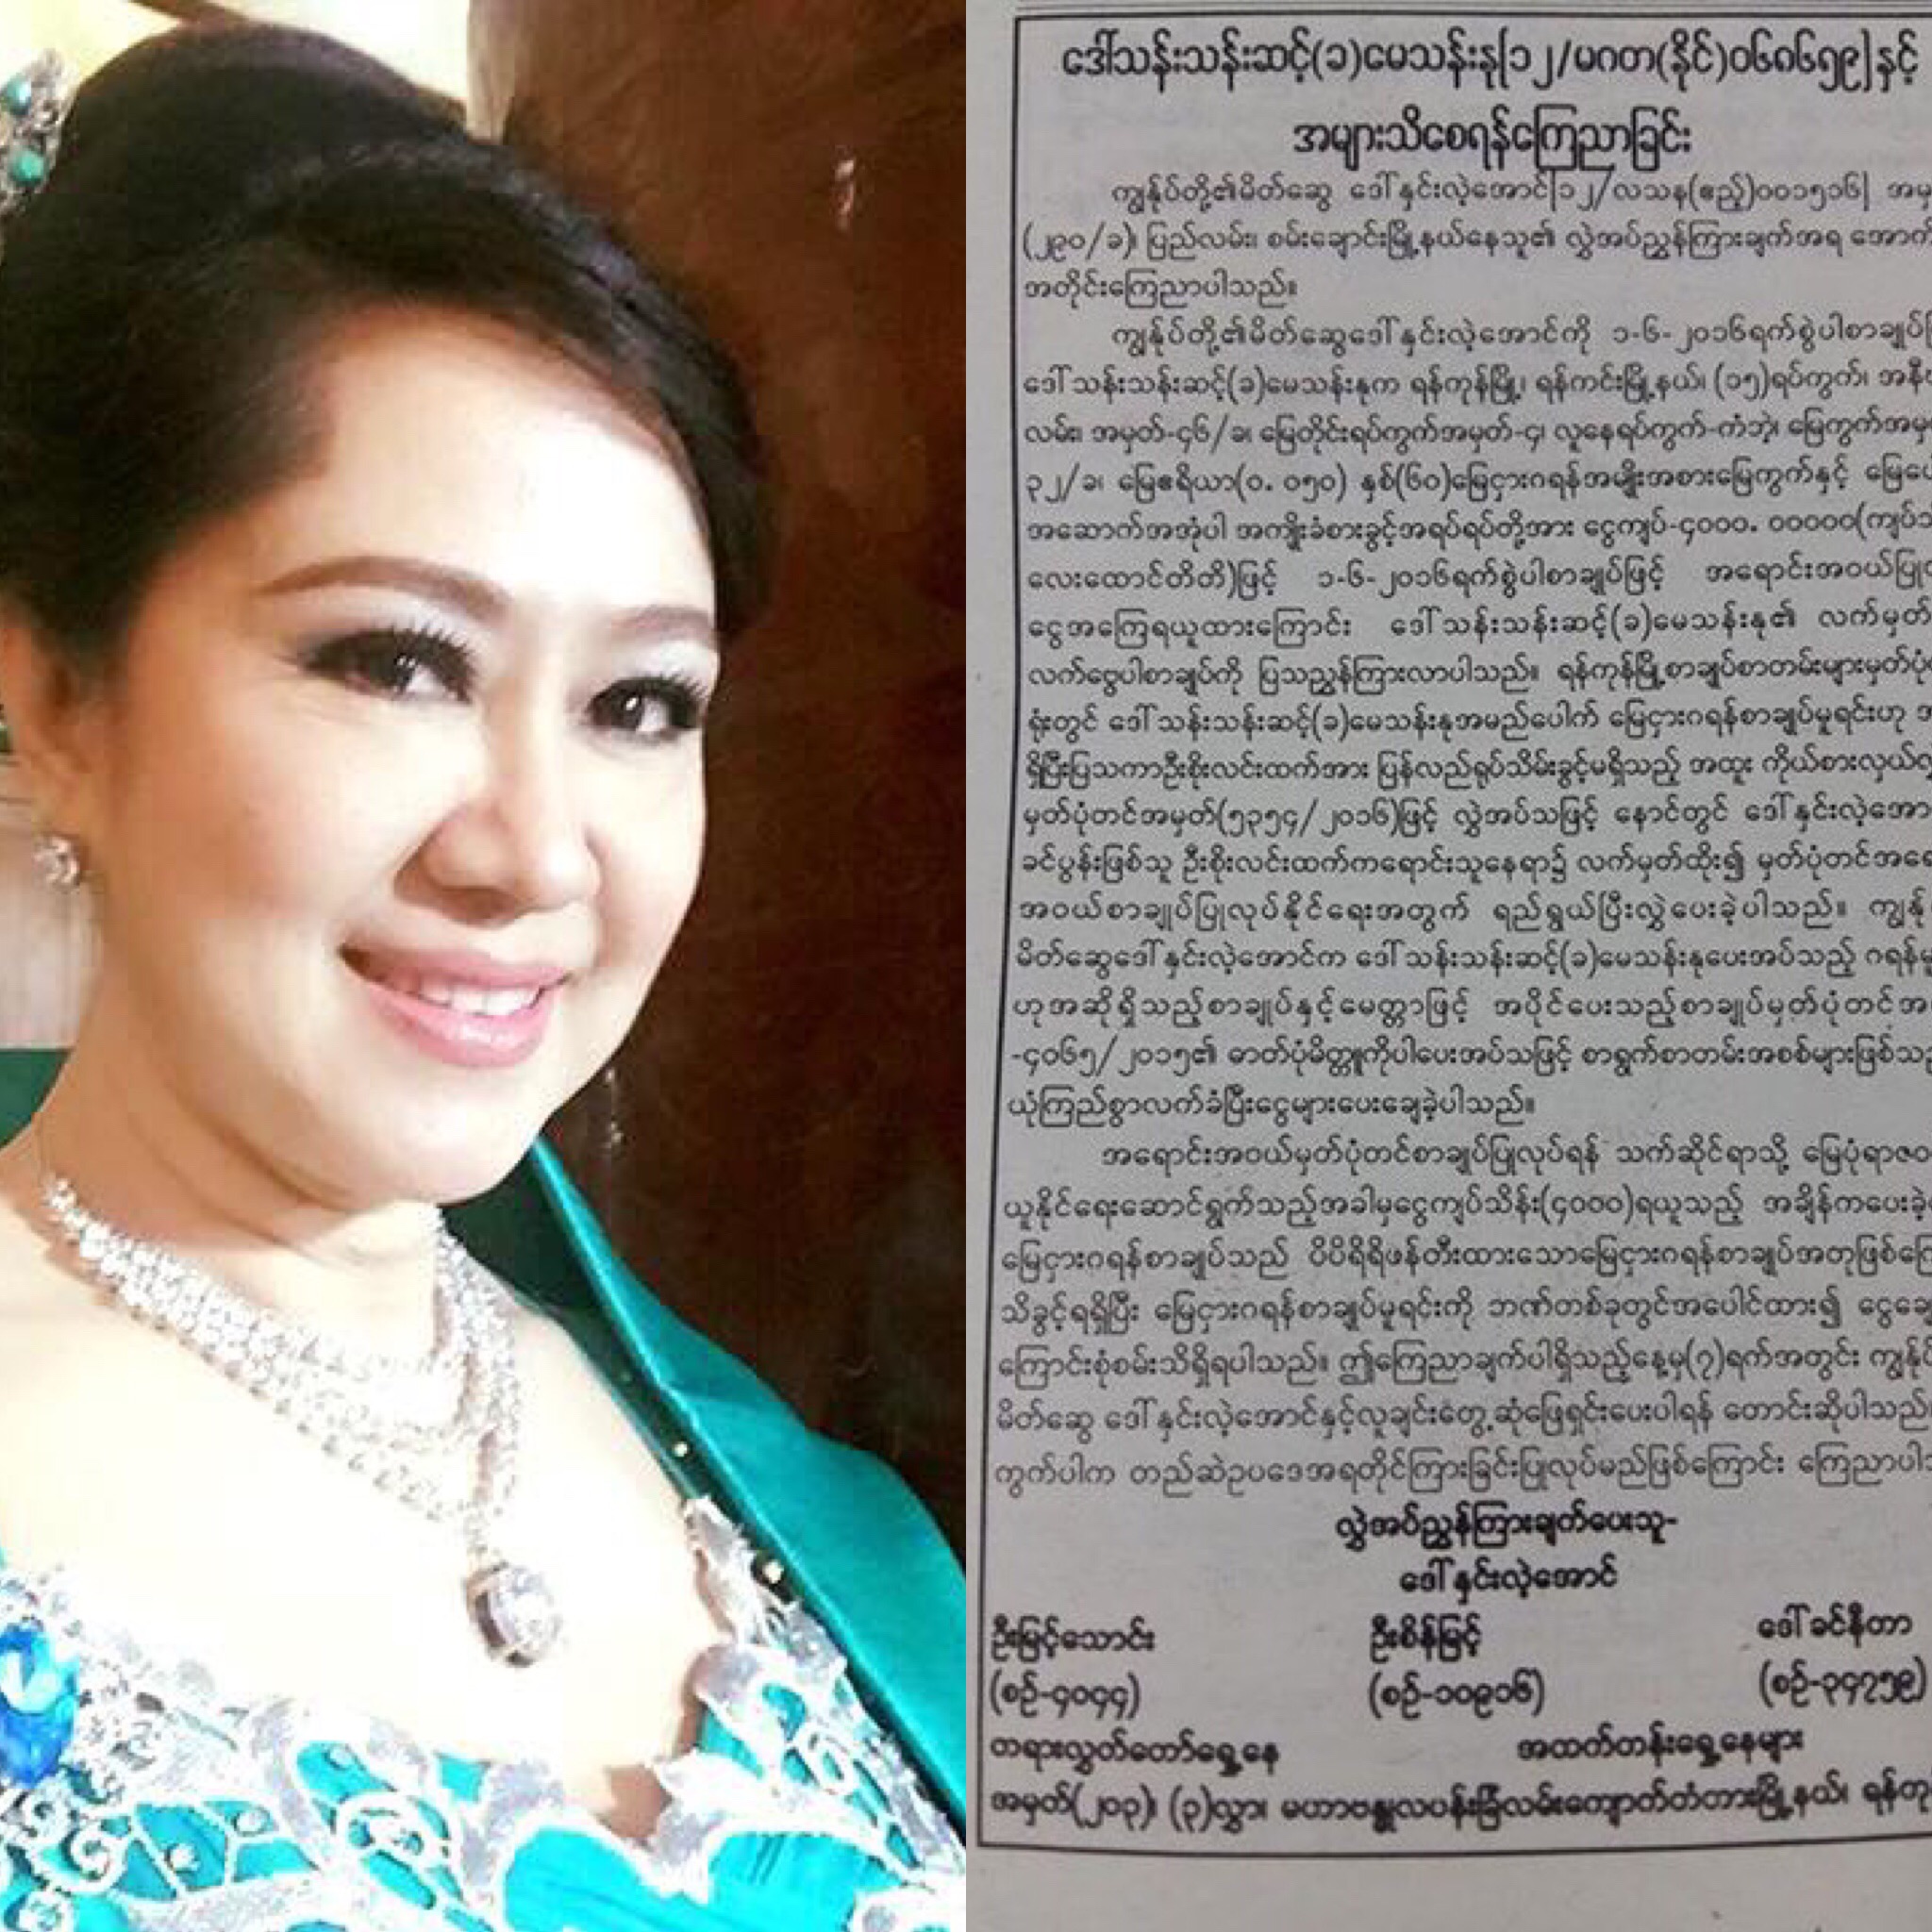 ဒေါ်သန်းသန်းဆင့်(ခ)မေသန်းနု[၁၂/မဂတ(နိုင်)၀၆၈၆၅၉]နှင့်
အများသိစေရန်ကြေညာခြင်း
ကျွန်ုပ်တို့၏မိတ်ဆွေ ဒေါ်နှင်းလဲ့အောင်[၁၂/လသန(ဧည့်)၀၀၁၅၁၆]
(၂၉၀/ခ)၊ ပြည်လမ်း၊ စမ်းချောင်းမြို့နယ်နေသူ၏ လွှဲအပ်ညွှန်ကြားချက်အရ
အတိုင်းကြေညာပါသည်။
ကျွန်ုပ်တို့၏မိတ်ဆွေဒေါ်နှင်းလဲ့အောင်ကို ၁-၆-၂၀၁၆ရက်စွဲပါစာချုပ်
ဒေါ်သန်းသန်းဆင့်(ခ)မေသန်းနုက ရန်ကုန်မြို့၊ ရန်ကင်းမြို့နယ်၊ (၁၅)ရပ်ကွက်၊
လမ်း၊ အမှတ်-၄၆/ခ၊ မြေတိုင်းရပ်ကွက်အမှတ်-၄၊ လူနေရပ်ကွက်-ကံဘဲ့၊
၃၂/ခ၊ မြေဧရိယာ(၀. ၀၅၀) နှစ်(၆၀)မြေငှားဂရန်အမျိုးအစားမြေကွက်နှင့်
အဆောက်အအုံပါ အကျိုးခံစားခွင့်အရပ်ရပ်တို့အား ငွေကျပ်-၄၀၀၀. ၀၀၀၀၀
လေးထောင်တိတိ)ဖြင့် ၁-၆-၂၀၁၆ရက်စွဲပါစာချုပ်ဖြင့်
ငွေအကြေရယူထားကြောင်း ဒေါ်သန်းသန်းဆင့်(ခ)မေသန်းနု၏ လက်မှတ်
လက်ငွေပါစာချုပ်ကို ပြသညွှန်ကြားလာပါသည်။
ရုံးတွင် ဒေါ်သန်းသန်းဆင့်(ခ)မေသန်းနုအမည်ပေါက် မြေငှားဂရန်စာချုပ်မူရင်းဟု
ရှိပြီးပြသကာဦးစိုးလင်းထက်အား ပြန်လည်ရုပ်သိမ်းခွင့်မရှိသည့် အထူး
မှတ်ပုံတင်အမှတ်(၅၃၅၄/၂၀၁၆)ဖြင့် လွှဲအပ်သဖြင့် နောင်တွင်
ခင်ပွန်းဖြစ်သူ ဦးစိုးလင်းထက်ကရောင်းသူနေရာ၌ လက်မှတ်ထိုး၍
အဝယ်စာချုပ်ပြုလုပ်နိုင်ရေးအတွက် ရည်ရွယ်ပြီးလွှဲပေးခဲ့ပါသည်။
မိတ်ဆွေဒေါ်နှင်းလဲ့အောင်က ဒေါ်သန်းသန်းဆင့်(ခ)မေသန်းနုပေးအပ်သည့်
ဟုအဆိုရှိသည့်စာချုပ်နှင့်မေတ္တာဖြင့် အပိုင်ပေးသည့်စာချုပ်မှတ်ပုံတင်
-၄၀၆၅/၂၀၁၅၏ ဓာတ်ပုံမိတ္တူကိုပါပေးအပ်သဖြင့်
ယုံကြည်စွာလက်ခံပြီးငွေများပေးချေခဲ့ပါသည်။
အရောင်းအဝယ်မှတ်ပုံတင်စာချုပ်ပြုလုပ်ရန် သက်ဆိုင်ရာသို့
ယူနိုင်ရေးဆောင်ရွက်သည့်အခါမှငွေကျပ်သိန်း(၄၀၀၀)ရယူသည့်
မြေငှားဂရန်စာချုပ်သည် ပိပိရိရိဖန်တီးထားသောမြေငှားဂရန်စာချုပ်
သိခွင့်ရရှိပြီး မြေငှားဂရန်စာချုပ်မူရင်းကို ဘဏ်တစ်ခုတွင်အပေါင်ထား၍
ကြောင်းစုံစမ်းသိရှိရပါသည်။ ဤကြေညာချက်ပါရှိသည့်နေ့မှ(၇)ရက်အတွင်း
မိတ်ဆွေ ဒေါ်နှင်းလဲ့အောင်နှင့်လူချင်းတွေ့ဆုံဖြေရှင်းပေးပါရန် တောင်းဆိုပါသည်
ကွက်ပါက တည်ဆဲဥပဒေအရတိုင်ကြားခြင်းပြုလုပ်မည်ဖြစ်ကြောင်း
လွှဲအပ်ညွှန်ကြားချက်ပေးသူ-
ဒေါ်နှင်းလဲ့အောင်
ဦးမြင့်သောင်း ဦးစိန်မြင့် ဒေါ်ခင်နီတာ
(စဉ်-၄၀၄၄) (စဉ်-၁၀၉၁၆) (စဉ်-၃၄၇၅၉)
တရားလွှတ်တော်ရှေ့နေ အထက်တန်းရှေ့နေများ
အမှတ်(၂၀၃)၊ (၃)လွှာ၊ မဟာဗန္ဓုလပန်းခြံလမ်းကျောက်တံတားမြို့နယ်၊